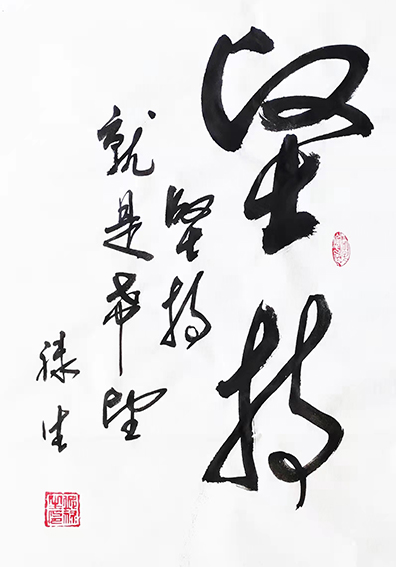 坚持
坚持
就是希望
禄生